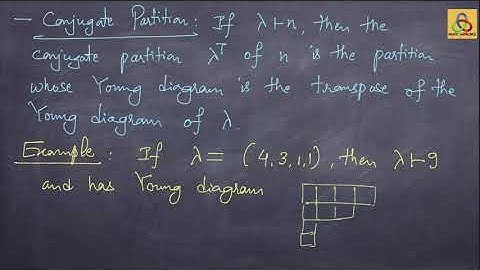 — Conjugate Partition: If λ⊢n, then the
conjugate partition λᵀ of n is the partition
whose Young diagram is the transpose of the
Young diagram of λ.
Example: If λ = (4,3,1,1), then λ⊢9
and has Young diagram